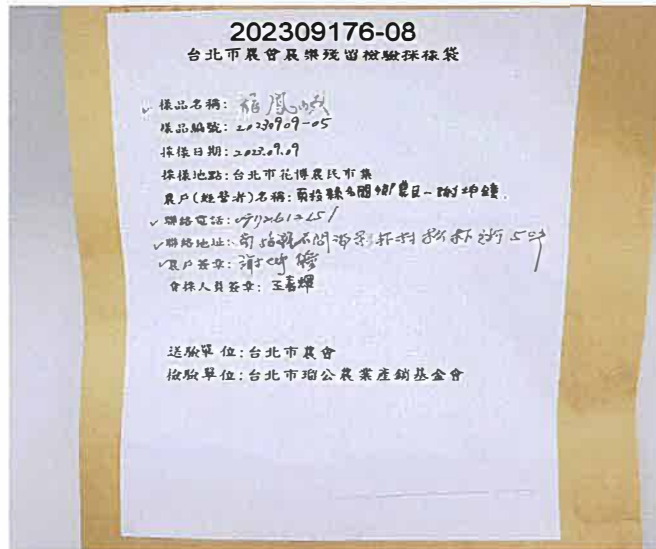 202309176-08
台北市農會農藥殘留檢驗採樣袋
樣品名稱:
樣品編號: 20230909-05
採樣日期: 2023.09.09
採樣地點: 台北市花博農民市集
農戶(經營者)名稱: 南投縣名間鄉農民-謝坤鐘
聯絡電話:
聯絡地址: 南投縣名間
農戶簽章: 謝坤鐘
會採人員簽章: 王喜輝
送驗單位: 台北市農會
檢驗單位: 台北市瑠公農業產銷基金會